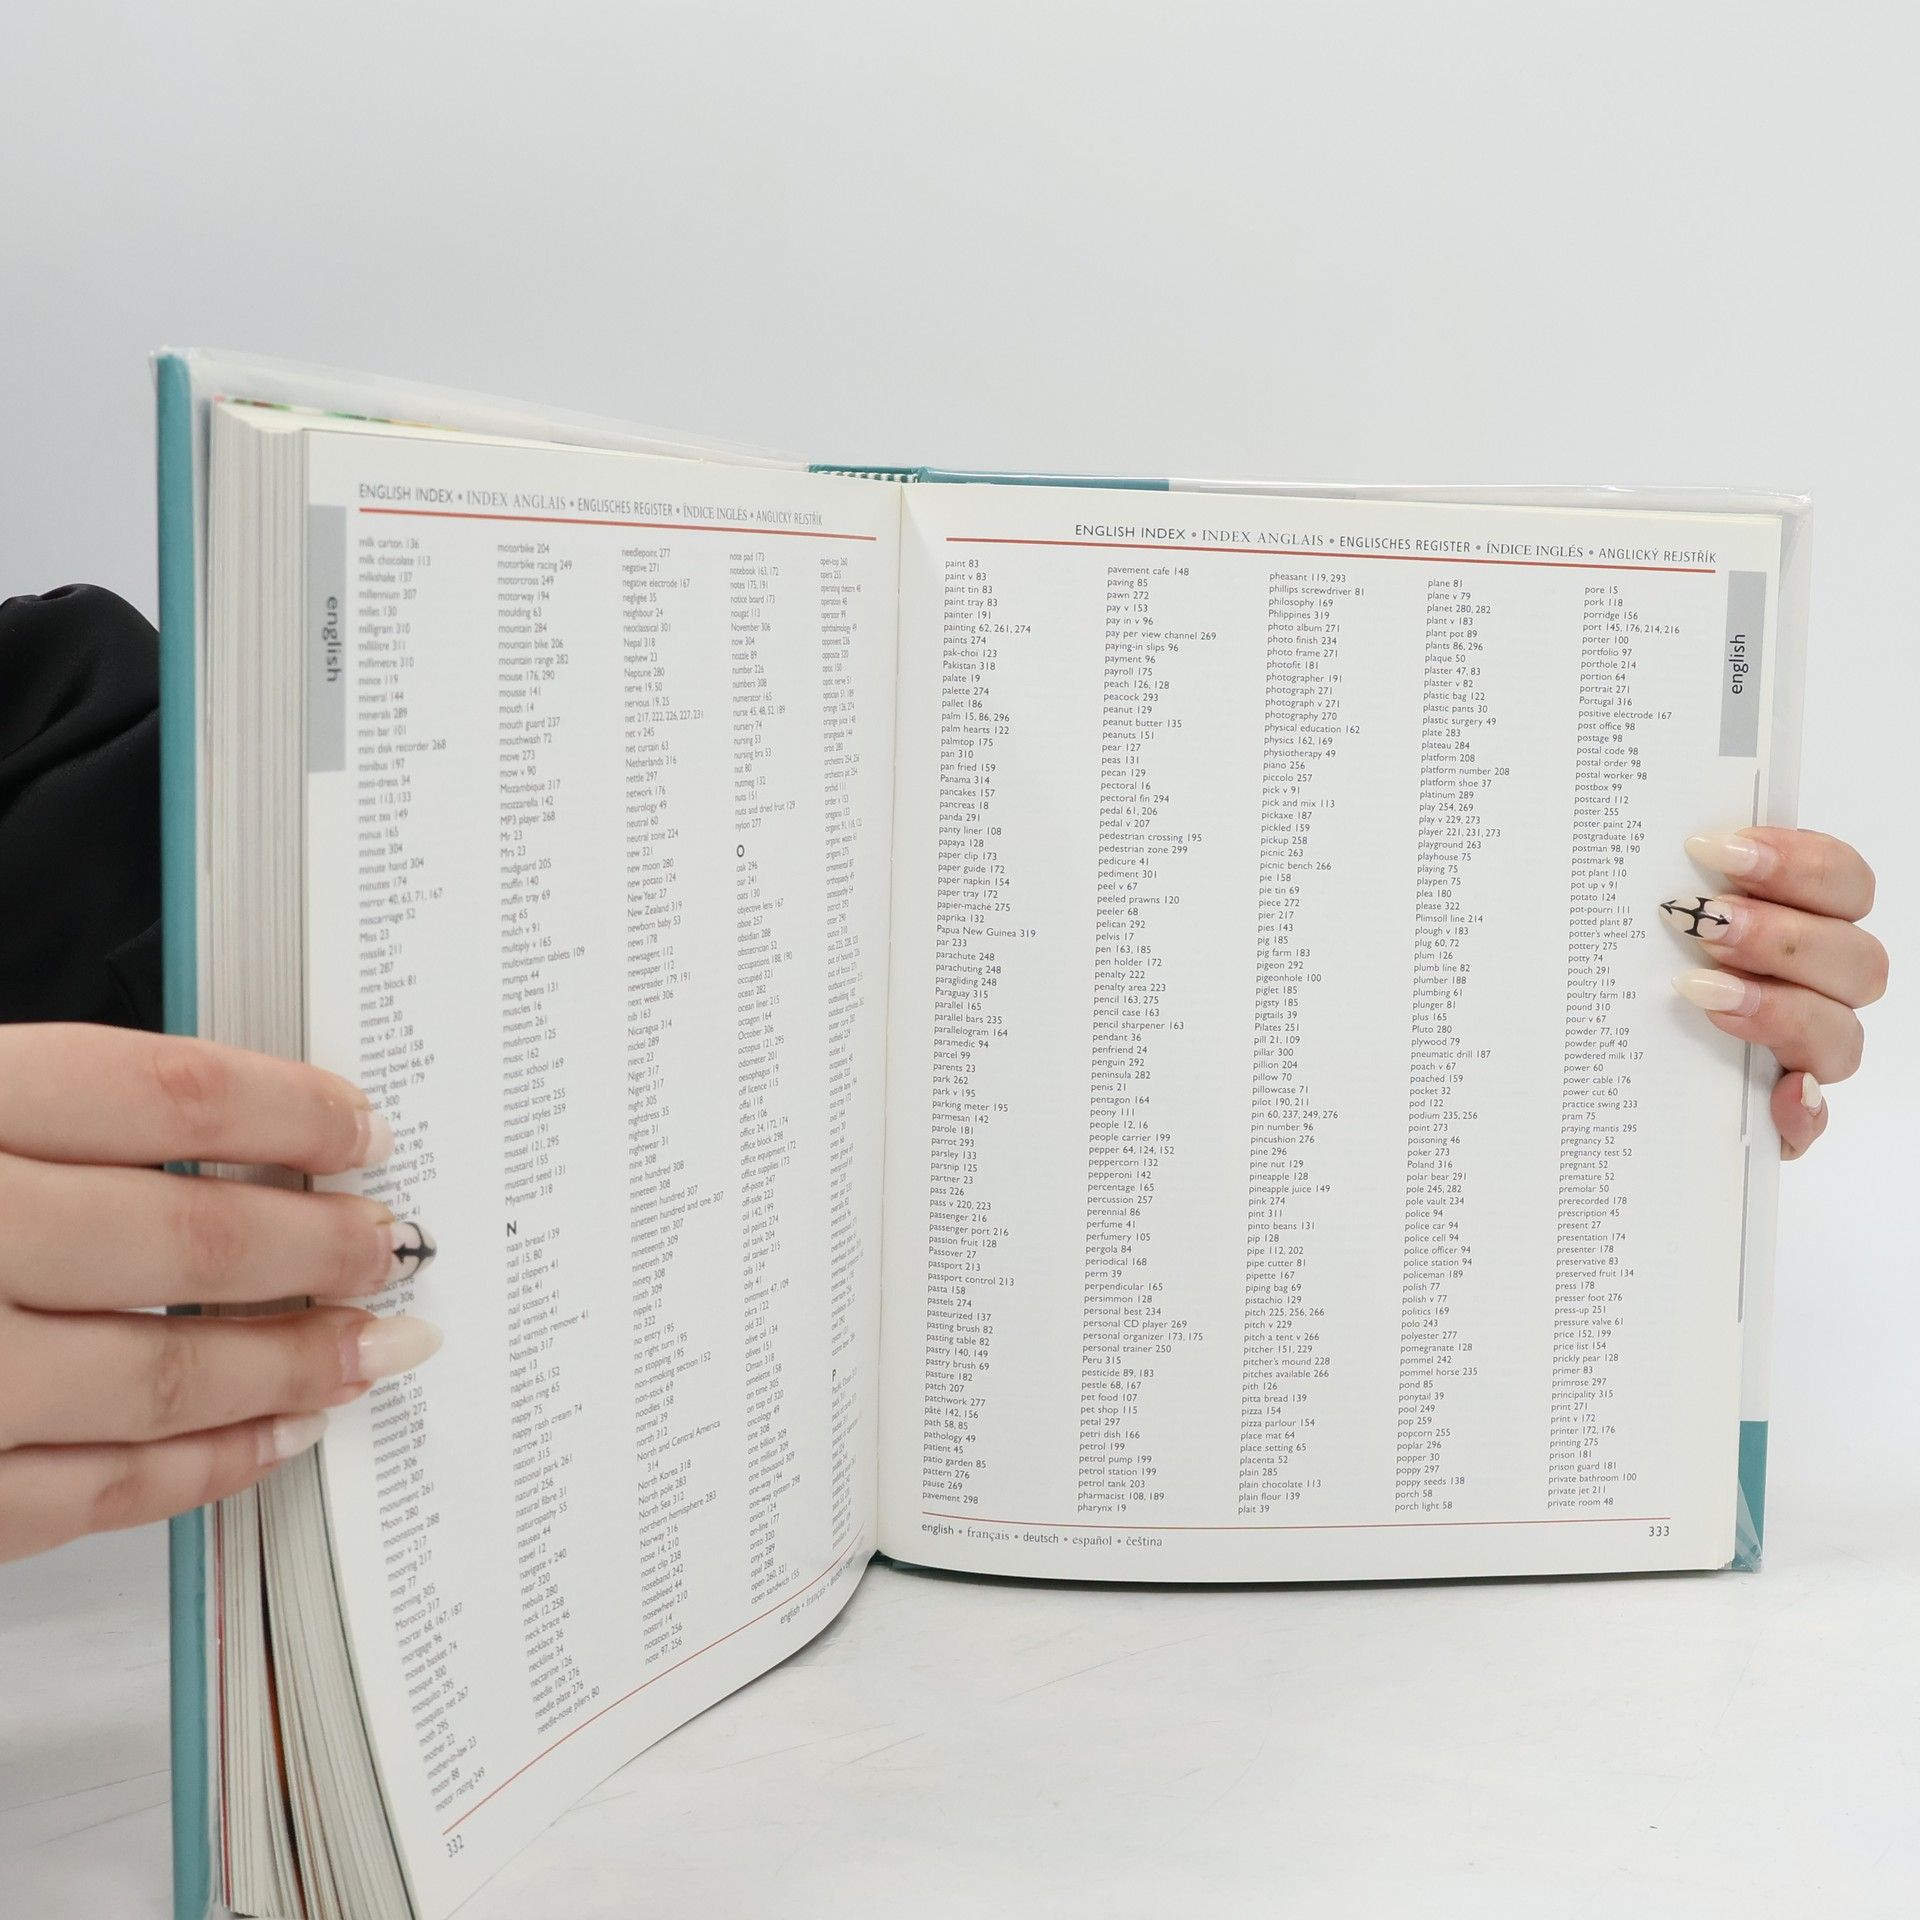 ENGLISH INDEX • INDEX ANGLAIS • ENGLISCHES REGISTER • ÍNDICE INGLÉS • ANGLICKÝ REJSTŘÍK
english
milk carton 136
milk chocolate 113
milkshake 137
millennium 307
millet 130
milligram 310
millilitre 311
millimetre 310
mince 119
mineral 144
minerals 289
mini bar 101
mini disk recorder 268
minibus 197
mini-dress 34
mint 113, 133
mint tea 149
minus 165
minute 304
minute hand 304
minutes 174
mirror 40, 63, 71, 167
miscarriage 52
Miss 23
missile 211
mist 287
mitre block 81
mitt 228
mittens 30
mix v 67, 138
mixed salad 158
mixing bowl 66, 69
mixing desk 179
model making 275
modelling tool 275
Monday 306
monkey 291
monkfish 120
monopoly 272
monorail 208
monsoon 287
month 306
monthly 307
monument 261
Moon 280
moonstone 288
moor v 217
mooring 217
mop 77
morning 305
Morocco 317
mortar 68, 167, 187
mortgage 96
moses basket 74
mosque 300
mosquito 295
mosquito net 267
moth 295
mother 22
mother-in-law 23
motor 88
motor racing 249
motorbike 204
motorbike racing 249
motorcross 249
motorway 194
moulding 63
mountain 284
mountain bike 206
mountain range 282
mouse 176, 290
mousse 141
mouth 14
mouth guard 237
mouthwash 72
move 273
mow v 90
Mozambique 317
mozzarella 142
MP3 player 268
Mr 23
Mrs 23
mudguard 205
muffin 140
muffin tray 69
mug 65
mulch v 91
multiply v 165
multivitamin tablets 109
mumps 44
mung beans 131
muscles 16
museum 261
mushroom 125
music 162
music school 169
musical 255
musical score 255
musical styles 259
musician 191
mussel 121, 295
mustard 155
mustard seed 131
Myanmar 318
N
naan bread 139
nail 15, 80
nail clippers 41
nail file 41
nail scissors 41
nail varnish 41
nail varnish remover 41
Namibia 317
nape 13
napkin 65, 152
napkin ring 65
nappy 75
nappy rash cream 74
narrow 321
nation 315
national park 261
natural 256
natural fibre 31
naturopathy 55
nausea 44
navel 12
navigate v 240
near 320
nebula 280
neck 12, 258
neck brace 46
necklace 36
neckline 34
nectarine 126
needle 109, 276
needle plate 276
needle-nose pliers 80
needlepoint 277
negative 271
negative electrode 167
negligee 35
neighbour 24
neoclassical 301
Nepal 318
nephew 23
Neptune 280
nerve 19, 50
nervous 19, 25
net 217, 222, 226, 227, 231
net v 245
net curtain 63
Netherlands 316
nettle 297
network 176
neurology 49
neutral 60
neutral zone 224
new 321
new moon 280
new potato 124
New Year 27
New Zealand 319
newborn baby 53
news 178
newsagent 112
newspaper 112
newsreader 179, 191
next week 306
nib 163
Nicaragua 314
nickel 289
niece 23
Niger 317
Nigeria 317
night 305
nightdress 35
nightie 31
nightwear 31
nine 308
nine hundred 308
nineteen 308
nineteen hundred 307
nineteen hundred and one 307
nineteen ten 307
nineteenth 309
ninetieth 309
ninety 308
ninth 309
nipple 12
no 322
no entry 195
no right turn 195
no stopping 195
non-smoking section 152
non-stick 69
noodles 158
normal 39
north 312
North and Central America
314
North Korea 318
North pole 283
North Sea 312
northern hemisphere 283
Norway 316
nose 14, 210
nose clip 238
noseband 242
nosebleed 44
nosewheel 210
nostril 14
notation 256
note 97, 256
note pad 173
notebook 163, 172
notes 175, 191
notice board 173
nougat 113
November 306
now 304
nozzle 89
number 226
numbers 308
numerator 165
nurse 45, 48, 52, 189
nursery 74
nursing 53
nursing bra 53
nut 80
nutmeg 132
nuts 151
nuts and dried fruit 129
nylon 277
O
oak 296
oar 241
oats 130
objective lens 167
oboe 257
obsidian 288
obstetrician 52
occupations 188, 190
occupied 321
ocean 282
ocean liner 215
octagon 164
October 306
octopus 121, 295
odometer 201
oesophagus 19
off licence 115
offal 118
offers 106
office 24, 172, 174
office block 298
office equipment 172
office supplies 173
off-piste 247
off-side 223
oil 142, 199
oil paints 274
oil tank 204
oil tanker 215
oils 134
oily 41
ointment 47, 109
okra 122
old 321
olive oil 134
olives 151
Oman 318
omelette 158
on time 305
on top of 320
oncology 49
one 308
one billion 309
one million 309
one thousand 309
one-way 194
one-way system 298
onion 124
on-line 177
onto 320
onyx 289
opal 288
open 260, 321
open sandwich 155
open-top 260
opera 255
operating theatre 48
operation 48
operator 99
ophthalmology 49
opponent 236
opposite 320
optic 150
optic nerve 51
optician 51, 189
orange 126, 274
orange juice 148
orangeade 144
orbit 280
orchestra 254, 256
orchestra pit 254
orchid 111
order v 153
oregano 133
P
332
ENGLISH INDEX • INDEX ANGLAIS • ENGLISCHES REGISTER • ÍNDICE INGLÉS • ANGLICKÝ REJSTŘÍK
english
paint 83
paint v 83
paint tin 83
paint tray 83
painter 191
painting 62, 261, 274
paints 274
pak-choi 123
Pakistan 318
palate 19
palette 274
pallet 186
palm 15, 86, 296
palm hearts 122
palmtop 175
pan 310
pan fried 159
Panama 314
pancakes 157
pancreas 18
panda 291
panty liner 108
papaya 128
paper clip 173
paper guide 172
paper napkin 154
paper tray 172
papier-maché 275
paprika 132
Papua New Guinea 319
par 233
parachute 248
parachuting 248
paragliding 248
Paraguay 315
parallel 165
parallel bars 235
parallelogram 164
paramedic 94
parcel 99
parents 23
park 262
park v 195
parking meter 195
parmesan 142
parole 181
parrot 293
parsley 133
parsnip 125
partner 23
pass 226
pass v 220, 223
passenger 216
passenger port 216
passion fruit 128
Passover 27
passport 213
passport control 213
pasta 158
pastels 274
pasteurized 137
pasting brush 82
pasting table 82
pastry 140, 149
pastry brush 69
pasture 182
patch 207
patchwork 277
pâté 142, 156
path 58, 85
pathology 49
patient 45
patio garden 85
pattern 276
pause 269
pavement 298
pavement cafe 148
paving 85
pawn 272
pay v 153
pay in v 96
pay per view channel 269
paying-in slips 96
payment 96
payroll 175
peach 126, 128
peacock 293
peanut 129
peanut butter 135
peanuts 151
pear 127
peas 131
pecan 129
pectoral 16
pectoral fin 294
pedal 61, 206
pedal v 207
pedestrian crossing 195
pedestrian zone 299
pedicure 41
pediment 301
peel v 67
peeled prawns 120
peeler 68
pelican 292
pelvis 17
pen 163, 185
pen holder 172
penalty 222
penalty area 223
pencil 163, 275
pencil case 163
pencil sharpener 163
pendant 36
penfriend 24
penguin 292
peninsula 282
penis 21
pentagon 164
peony 111
people 12, 16
people carrier 199
pepper 64, 124, 152
peppercorn 132
pepperoni 142
percentage 165
percussion 257
perennial 86
perfume 41
perfumery 105
pergola 84
periodical 168
perm 39
perpendicular 165
persimmon 128
personal best 234
personal CD player 269
personal organizer 173, 175
personal trainer 250
Peru 315
pesticide 89, 183
pestle 68, 167
pet food 107
pet shop 115
petal 297
petri dish 166
petrol 199
petrol pump 199
petrol station 199
petrol tank 203
pharmacist 108, 189
pharynx 19
pheasant 119, 293
phillips screwdriver 81
philosophy 169
Philippines 319
photo album 271
photo finish 234
photo frame 271
photofit 181
photographer 191
photograph 271
photograph v 271
photography 270
physical education 162
physics 162, 169
physiotherapy 49
piano 256
piccolo 257
pick v 91
pick and mix 113
pickaxe 187
pickled 159
pickup 258
picnic 263
picnic bench 266
pie 158
pie tin 69
piece 272
pier 217
pies 143
pig 185
pig farm 183
pigeon 292
pigeonhole 100
piglet 185
pigsty 185
pigtails 39
Pilates 251
pill 21, 109
pillar 300
pillion 204
pillow 70
pillowcase 71
pilot 190, 211
pin 60, 237, 249, 276
pin number 96
pincushion 276
pine 296
pine nut 129
pineapple 128
pineapple juice 149
pink 274
pint 311
pinto beans 131
pip 128
pipe 112, 202
pipe cutter 81
pipette 167
piping bag 69
pistachio 129
pitch 225, 256, 266
pitch v 229
pitch a tent v 266
pitcher 151, 229
pitcher's mound 228
pitches available 266
pith 126
pitta bread 139
pizza 154
pizza parlour 154
place mat 64
place setting 65
placenta 52
plain 285
plain chocolate 113
plain flour 139
plait 39
plane 81
plane v 79
planet 280, 282
plant v 183
plant pot 89
plants 86, 296
plaque 50
plaster 47, 83
plaster v 82
plastic bag 122
plastic pants 30
plastic surgery 49
plate 283
plateau 284
platform 208
platform number 208
platform shoe 37
platinum 289
play 254, 269
play v 229, 273
player 221, 231, 273
playground 263
playhouse 75
playing 75
playpen 75
plea 180
please 322
Plimsoll line 214
plough v 183
plug 60, 72
plum 126
plumb line 82
plumber 188
plumbing 61
plunger 81
plus 165
Pluto 280
plywood 79
pneumatic drill 187
poach v 67
poached 159
pocket 32
pod 122
podium 235, 256
point 273
poisoning 46
poker 273
Poland 316
polar bear 291
pole 245, 282
pole vault 234
police 94
police car 94
police cell 94
police officer 94
police station 94
policeman 189
polish 77
polish v 77
politics 169
polo 243
polyester 277
pomegranate 128
pommel 242
pommel horse 235
pond 85
ponytail 39
pool 249
pop 259
popcorn 255
poplar 296
popper 30
poppy 297
poppy seeds 138
porch 58
porch light 58
pore 15
pork 118
porridge 156
port 145, 176, 214, 216
porter 100
portfolio 97
porthole 214
portion 64
portrait 271
Portugal 316
positive electrode 167
post office 98
postage 98
postal code 98
postal order 98
postal worker 98
postbox 99
postcard 112
poster 255
poster paint 274
postgraduate 169
postman 98, 190
postmark 98
pot plant 110
pot up v 91
potato 124
pot-pourri 111
potted plant 87
potter's wheel 275
pottery 275
potty 74
pouch 291
poultry 119
poultry farm 183
pound 310
pour v 67
powder 77, 109
powder puff 40
powdered milk 137
power 60
power cable 176
power cut 60
practice swing 233
pram 75
praying mantis 295
pregnancy 52
pregnancy test 52
pregnant 52
premature 52
premolar 50
prerecorded 178
prescription 45
present 27
presentation 174
presenter 178
preservative 83
preserved fruit 134
press 178
presser foot 276
press-up 251
pressure valve 61
price 152, 199
price list 154
prickly pear 128
primer 83
primrose 297
principality 315
print 271
print v 172
printer 172, 176
printing 275
prison 181
prison guard 181
private bathroom 100
private jet 211
private room 48
english • français • deutsch • español • čeština
333